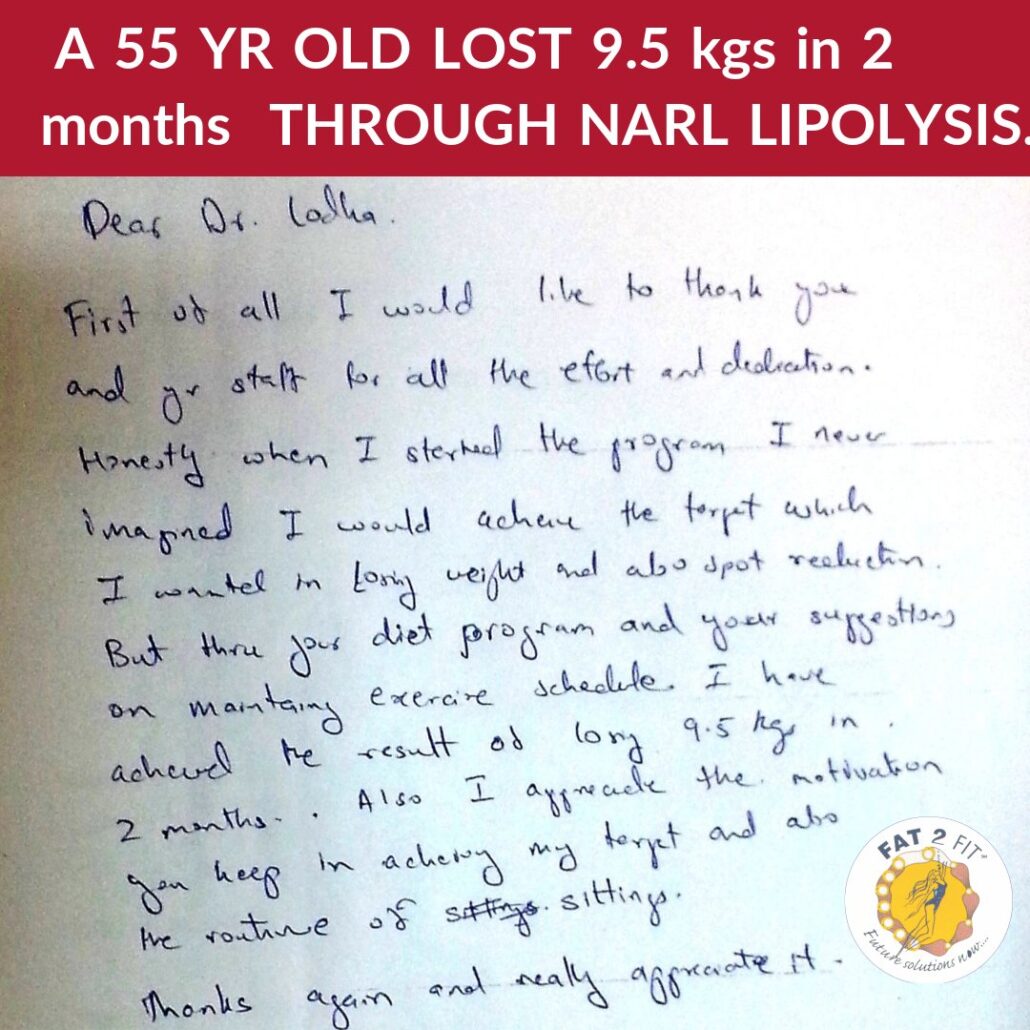 A 55 YR OLD LOST 9.5 kgs in 2
months THROUGH NARL LIPOLYSIS.
Dear Dr. Lodha.
First of all I would like to thank you
and yr staff for all the effort and dedication.
Honestly when I started the program I never
imagined I would acheve the target which
I wanted in losing weight and also spot reduction.
But thru your diet program and your suggestions
on maintaing exercise schedule. I have
acheved the result of losing 9.5 kgs in.
2 months. Also I appreciate the motivation
you keep in acheving my target and also
the routine of sittings. sittings.
Thanks again and really appreciate it.
FAT 2 FIT
Future solutions now....